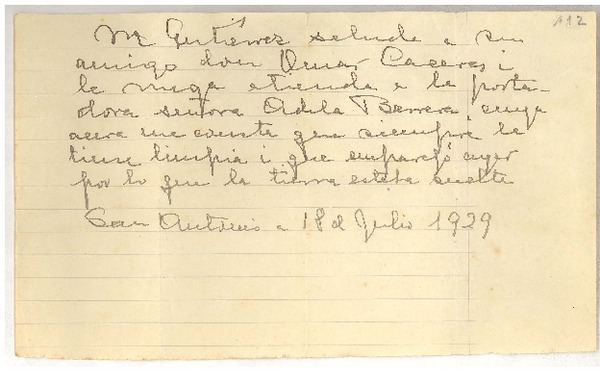 112
M Gutierrez saluda a su
amigo don Omar Caceres i
le ruega atienda a la porta-
dora señora Adela Berrera, cuya
acera me consta que siempre la
tiene limpia i que emparejó ayer
por lo que la tierra estaba suelta
San Antonio a 18 d Julio 1929